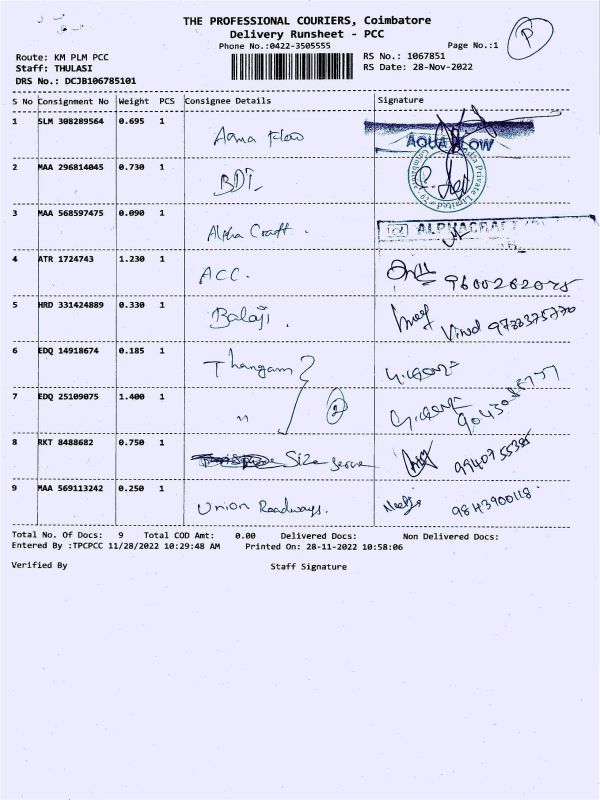 THE PROFESSIONAL COURIERS, Coimbatore
P
Delivery Runsheet - PCC
Phone No.:0422-3505555
Page No.:1
Route: KM PLM PCC
RS No.: 1067851
Staff: THULASI
RS Date: 28-Nov-2022
DRS No.: DCJB106785101
S No Consignment No Weight PCS Consignee Details Signature
1 SLM 308289564 0.695 1 Aqua Flow AQUA FLOW
2 MAA 296814045 0.730 1 BDI Private Limited Coimbatore
3 MAA 568597475 0.090 1 Alpha Craft. ALPHACRAFT
4 ATR 1724743 1.230 1 ACC. 9600262075
5 HRD 331424889 0.330 1 Balaji. Vinod 9788375770
6 EDQ 14918674 0.185 1 Thangam
7 EDQ 25109075 1.400 1 " 2
8 RKT 8488682 0.750 1 Size
9 MAA 569113242 0.250 1 Union Roadways. 9843900118
Total No. Of Docs: 9 Total COD Amt: 0.00 Delivered Docs: Non Delivered Docs:
Entered By :TPCPCC 11/28/2022 10:29:48 AM Printed On: 28-11-2022 10:58:06
Verified By Staff Signature